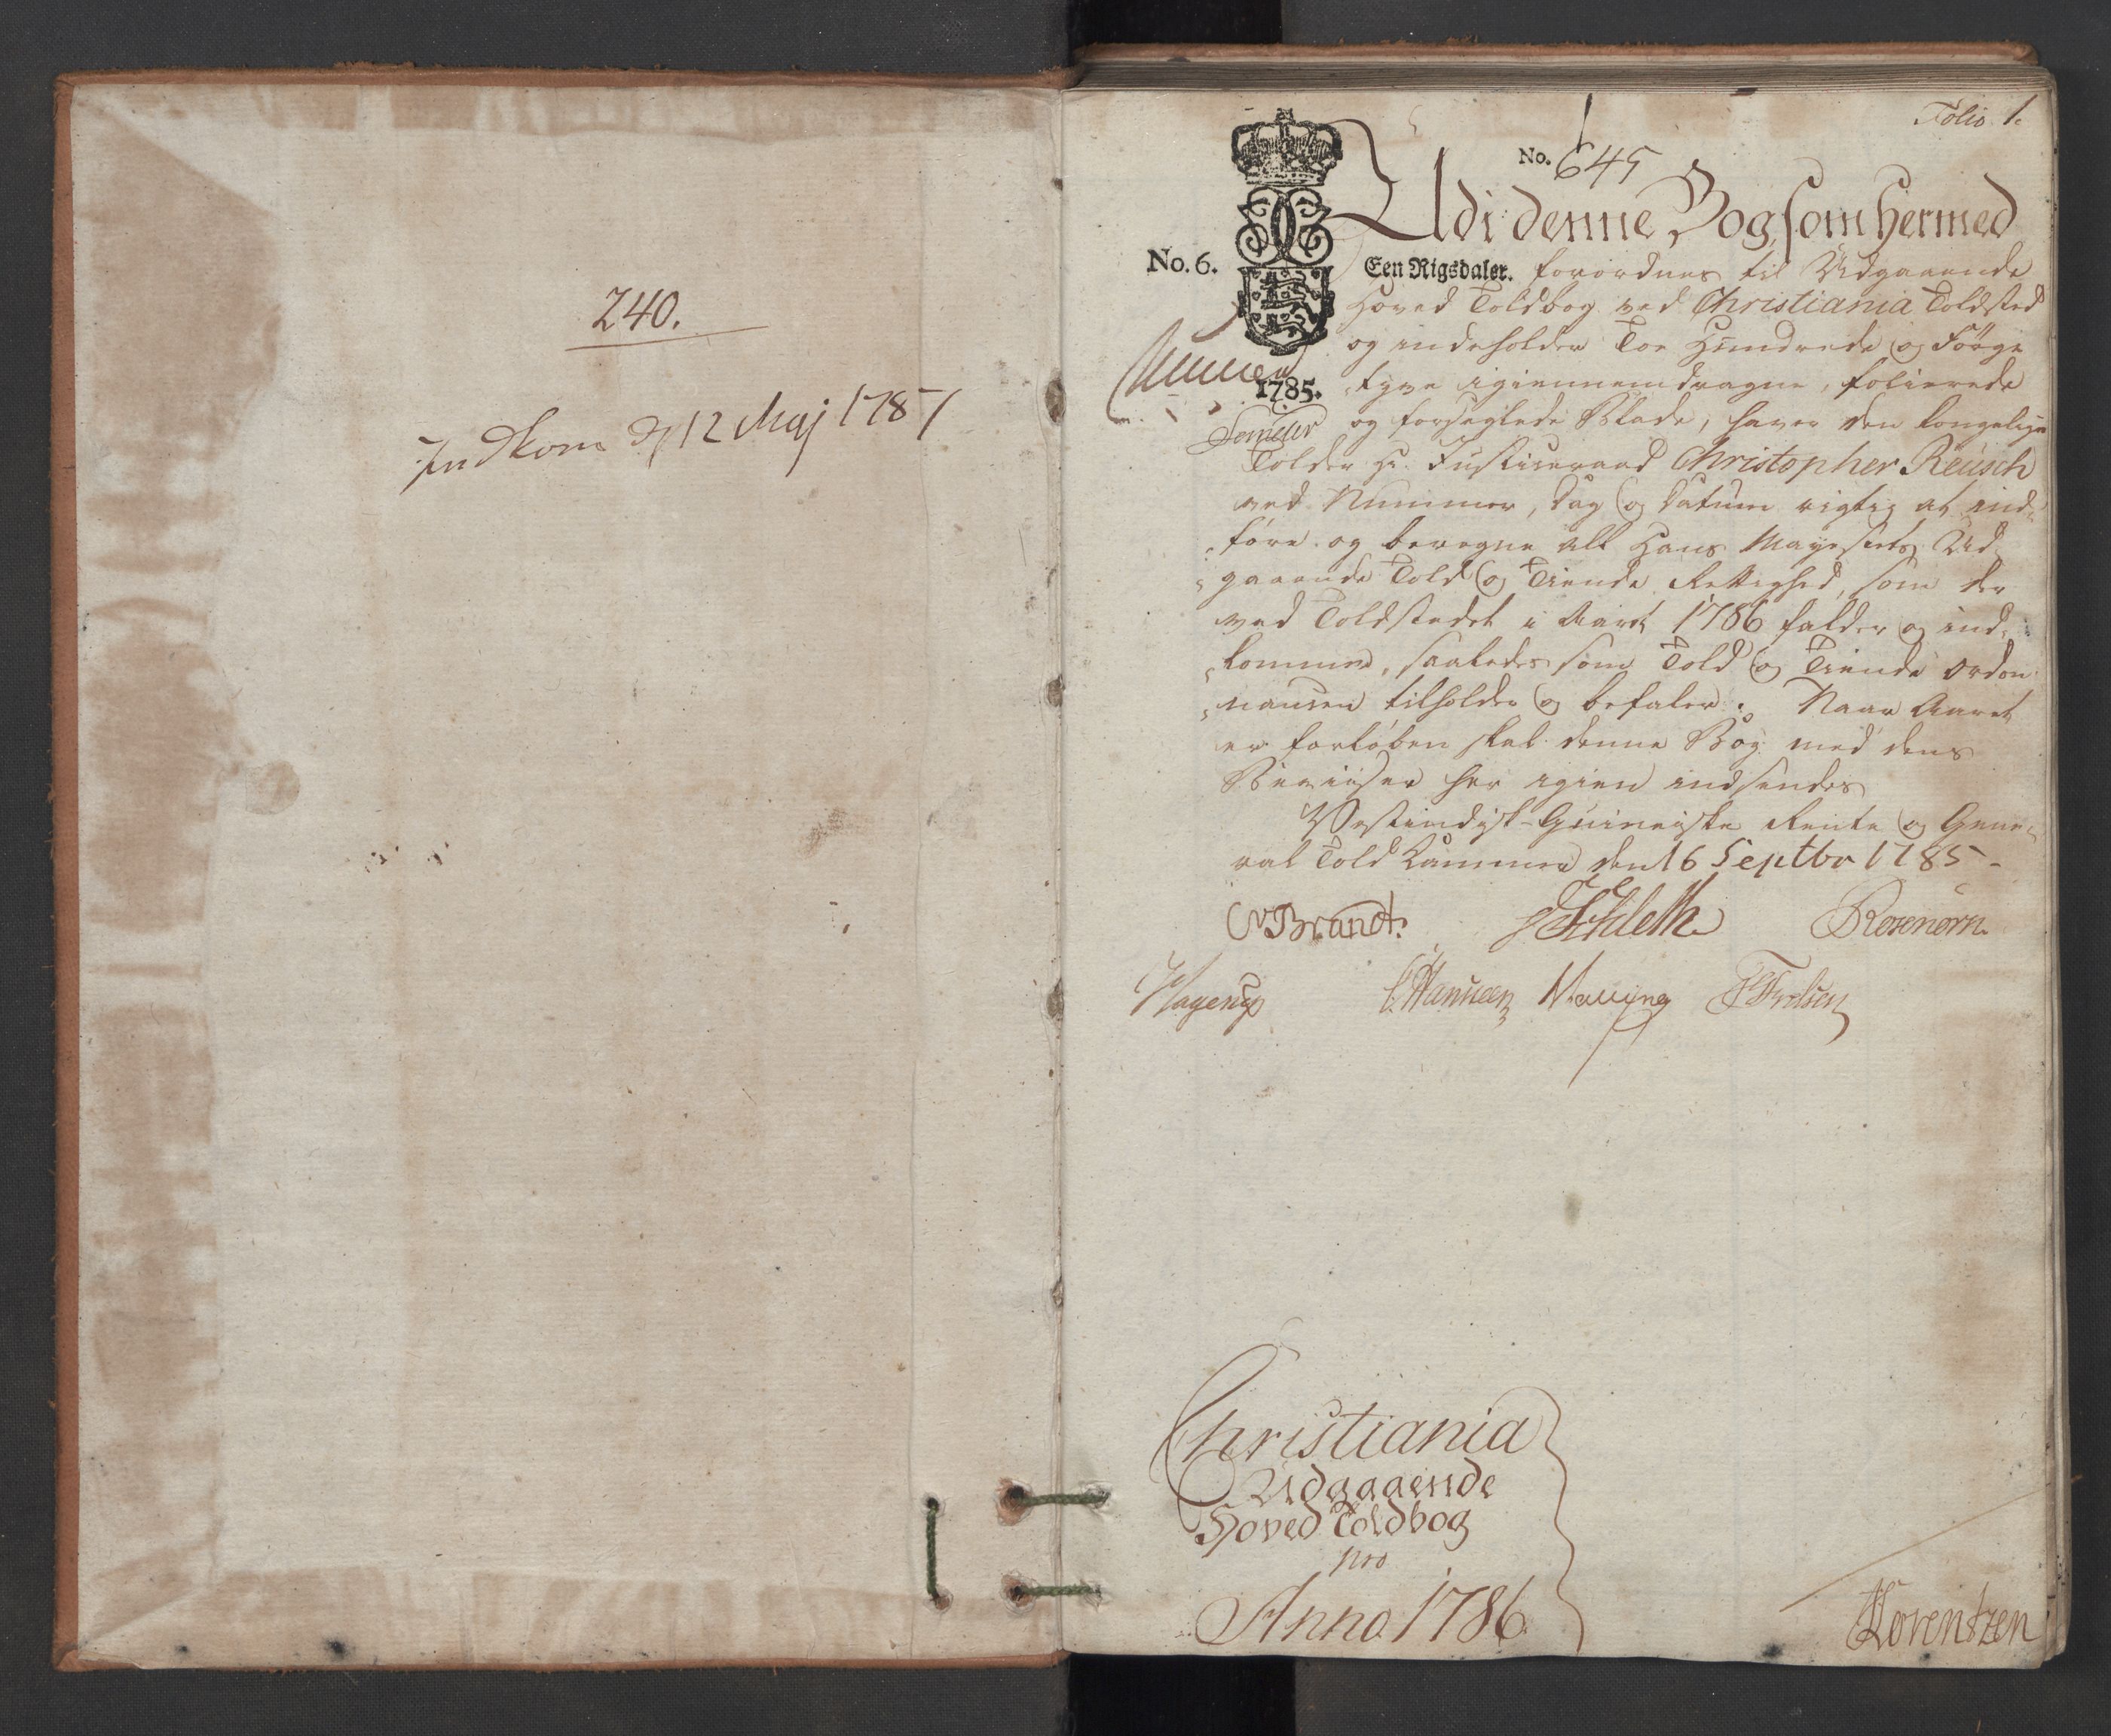 240.
Indkom d 12 Maj 1787
Folio 1.
No. 645
Udi denne Bog, som hermed
No. 6.
Een Rigsdaler. forordnes til Udgaaende
Hoved Toldbog ved Christiania Toldsted
og indeholder Toe Hundrede og Förge
1785. tyve igiennemdragne, folierede
og forseglede Blade, haver den kongelige
Tolder Hr. Justiceraad Christopher Reusch
ved Nummer, Dag og Datum rigtig at ind-
före og beregne alt Hans Mayestets Ud-
gaaende Told og Tiende Rettighed, som der
ved Toldstedet i Aaret 1786 falder og ind-
kommer, saaledes som Told og Tiende Ordon-
nancen tilholder og befaler. Naar Aaret
er forløben skal denne Bog med dens
Beviiser her igien indsendes
Vestindisk-Guineiske Rente og Gene-
ral Told Kammer den 16 Septbr 1785
Brandt.
Rosenørn.
Hansen
Lorentzen
Christiania
Udgaaende
Hoved Toldbog
pro
Anno 1786